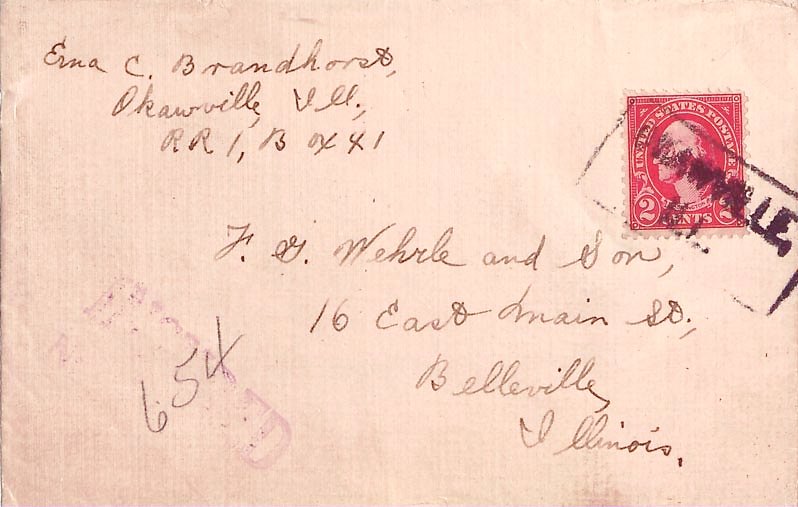 Erna C. Brandhorst,
Okawville, Ill.,
RR 1, Box 41
UNITED STATES POSTAGE
2 CENTS 2
F. G. Wehrle and Son,
16 East Main St.,
Belleville,
Illinois.
INSURED
654